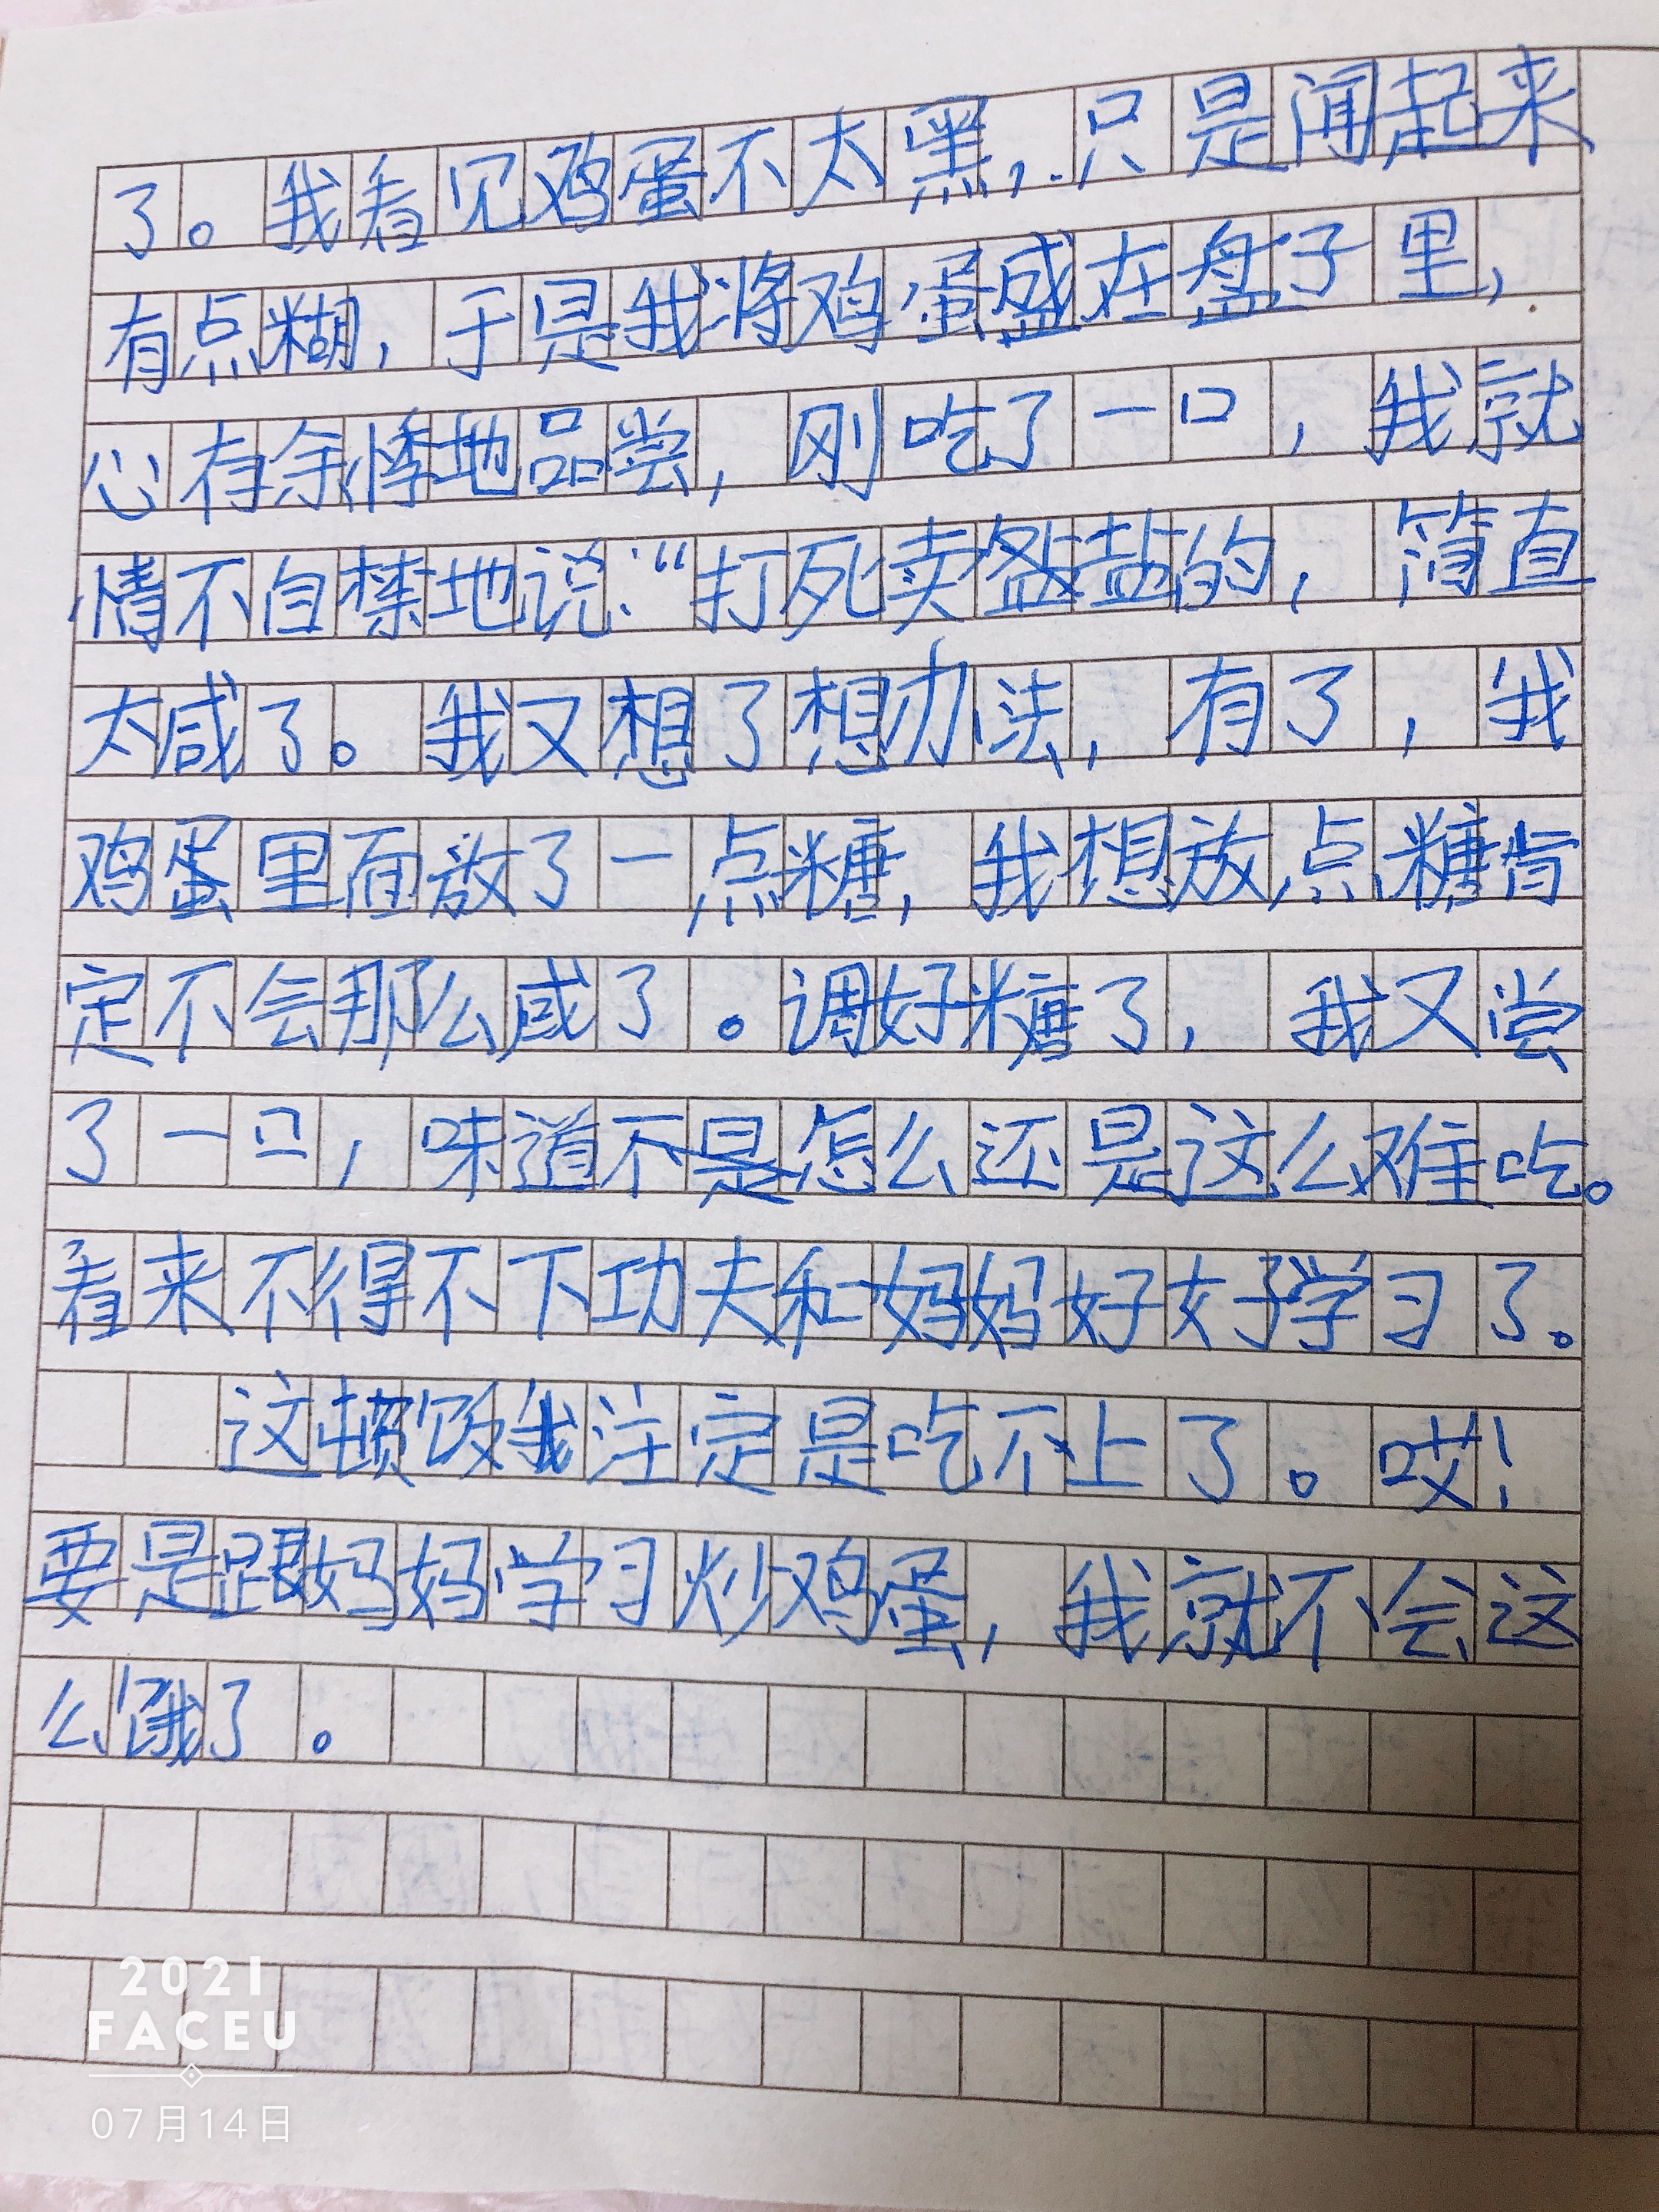 了。我看见鸡蛋不太黑，只是闻起来
有点糊，于是我将鸡蛋盛在盘子里，
心有余悸地品尝，刚吃了一口，我就
情不自禁地说：“打死卖盐的，简直
太咸了。我又想了想办法，有了，我
鸡蛋里面放了一点糖，我想放点糖肯
定不会那么咸了。调好糖了，我又尝
了一口，味道不是怎么还是这么难吃。
看来不得不下功夫和妈妈好好学习了。
这顿饭我注定是吃不上了。哎！
要是跟妈妈学习炒鸡蛋，我就不会这
么饿了。
2021
FACEU
07月14日